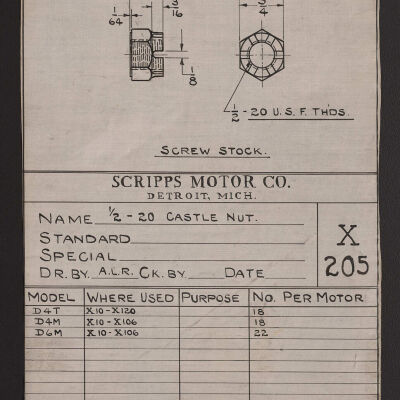 1/64
3/16
3/4
1/8
1/2 - 20 U.S.F. TH'DS.
SCREW STOCK.
SCRIPPS MOTOR CO.
DETROIT, MICH.
NAME 1/2 - 20 CASTLE NUT.
STANDARD
SPECIAL
DR. BY. A.L.R. CK. BY DATE
X 205
MODEL WHERE USED PURPOSE NO. PER MOTOR
D4T X10 - X120 18
D4M X10 - X106 18
D6M X10 - X106 22